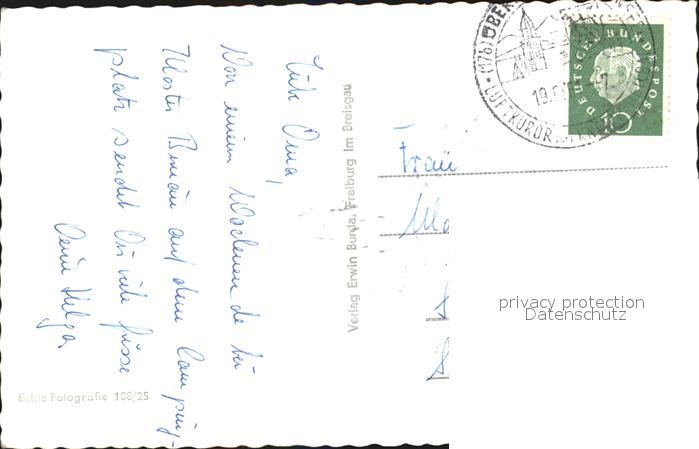 Liebe Oma,
Von einem Wochenende bei
Kloster Birnau auf dem Camping-
platz sendet Dir viele Grüsse
Deine Helga
Echte Fotografie 108/25
Verlag Erwin Burda, Freiburg im Breisgau
(17b) ÜBER
LUFTKUROR
19.6
DEUTSCHE BUNDESPOST
10
Frau
privacy protection
Datenschutz